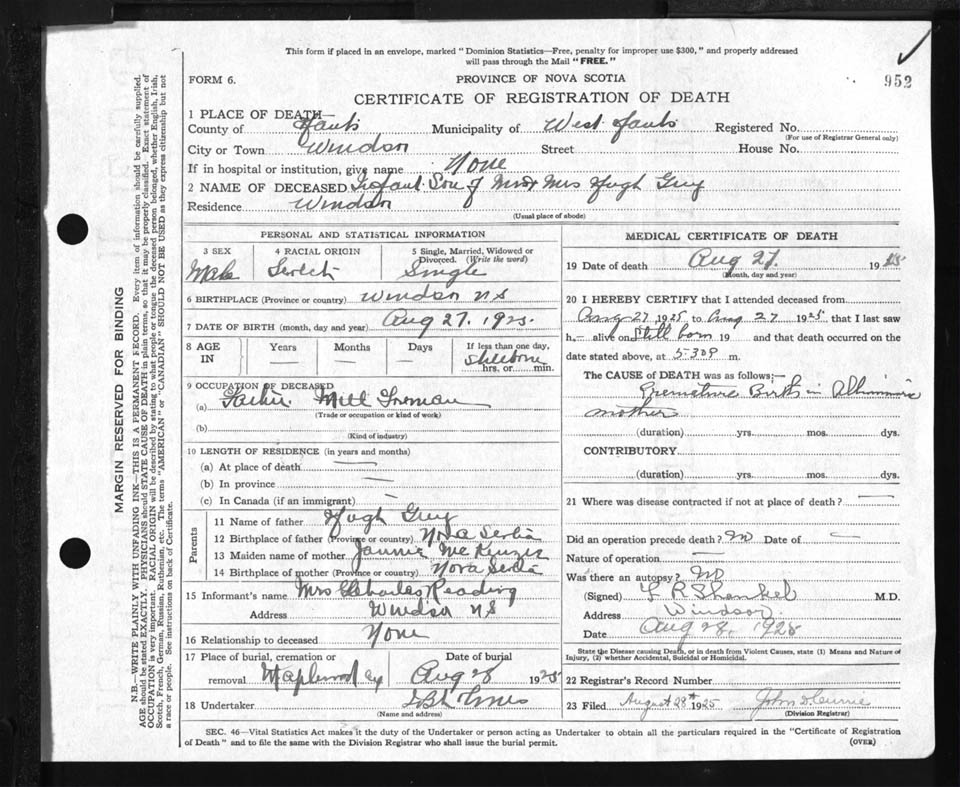 This form if placed in an envelope, marked "Dominion Statistics—Free, penalty for improper use $300," and properly addressed
will pass through the Mail "FREE."
FORM 6.
PROVINCE OF NOVA SCOTIA
952
CERTIFICATE OF REGISTRATION OF DEATH
1 PLACE OF DEATH—
County of Hants Municipality of West Hants Registered No.
(For use of Registrar General only)
City or Town Windsor Street House No.
If in hospital or institution, give name None
2 NAME OF DECEASED Infant Son of Mr & Mrs Hugh Guy
Residence Windsor
(Usual place of abode)
PERSONAL AND STATISTICAL INFORMATION
3 SEX 4 RACIAL ORIGIN 5 Single, Married, Widowed or
Divorced. (Write the word)
Male Scotch Single
6 BIRTHPLACE (Province or country) Windsor NS
7 DATE OF BIRTH (month, day and year) Aug 27. 1925.
8 AGE IN Years Months Days If less than one day,
Stillborne
hrs. or min.
9 OCCUPATION OF DECEASED
(a) Father. Mill Foreman
(Trade or occupation or kind of work)
(b)
(Kind of industry)
10 LENGTH OF RESIDENCE (in years and months)
(a) At place of death
(b) In province
(c) In Canada (if an immigrant)
Parents
11 Name of father Hugh Guy
12 Birthplace of father (Province or country) Nova Scotia
13 Maiden name of mother McKenzie
14 Birthplace of mother (Province or country) Nova Scotia
15 Informant's name Mrs Charles Reading
Address Windsor NS
16 Relationship to deceased None
17 Place of burial, cremation or removal Date of burial
Maplewood Cy Aug 28 1925
18 Undertaker
(Name and address)
MEDICAL CERTIFICATE OF DEATH
19 Date of death Aug 27. 1925
(Month, day and year)
20 I HEREBY CERTIFY that I attended deceased from
Aug 27 1925 to Aug 27 1925 that I last saw
h— alive on Still born 19 and that death occurred on
date stated above, at 5-30 P m.
The CAUSE of DEATH was as follows:—
Premature Birth in
mother
(duration) yrs. mos. dys.
CONTRIBUTORY
(duration) yrs. mos. dys.
21 Where was disease contracted if not at place of death?
Did an operation precede death? No Date of
Nature of operation
Was there an autopsy? No
(Signed) R Shankel M.D.
Address Windsor
Date Aug 28, 1925
State the Disease causing Death, or in death from Violent Causes, state (1) Means and Nature of
Injury, (2) whether Accidental, Suicidal or Homicidal.
22 Registrar's Record Number
23 Filed August 28th 1925 John D. Currie
(Division Registrar)
SEC. 46—Vital Statistics Act makes it the duty of the Undertaker or person acting as Undertaker to obtain all the particulars required in the "Certificate of Registration
of Death" and to file the same with the Division Registrar who shall issue the burial permit. (OVER)
MARGIN RESERVED FOR BINDING
N.B.—WRITE PLAINLY WITH UNFADING INK—THIS IS A PERMANENT RECORD. Every item of information should be carefully supplied.
AGE should be stated EXACTLY. PHYSICIANS should STATE CAUSE OF DEATH in plain terms, so that it may be properly classified. Exact statement of
OCCUPATION is very important. RACIAL ORIGIN will be described by stating to what people or tongue the deceased person belonged, whether English, Irish,
Scotch, French, German, Russian, Ruthenian, etc. The terms "AMERICAN" or "CANADIAN" SHOULD NOT BE USED as they express citizenship but not
a race or people. See instructions on back of Certificate.